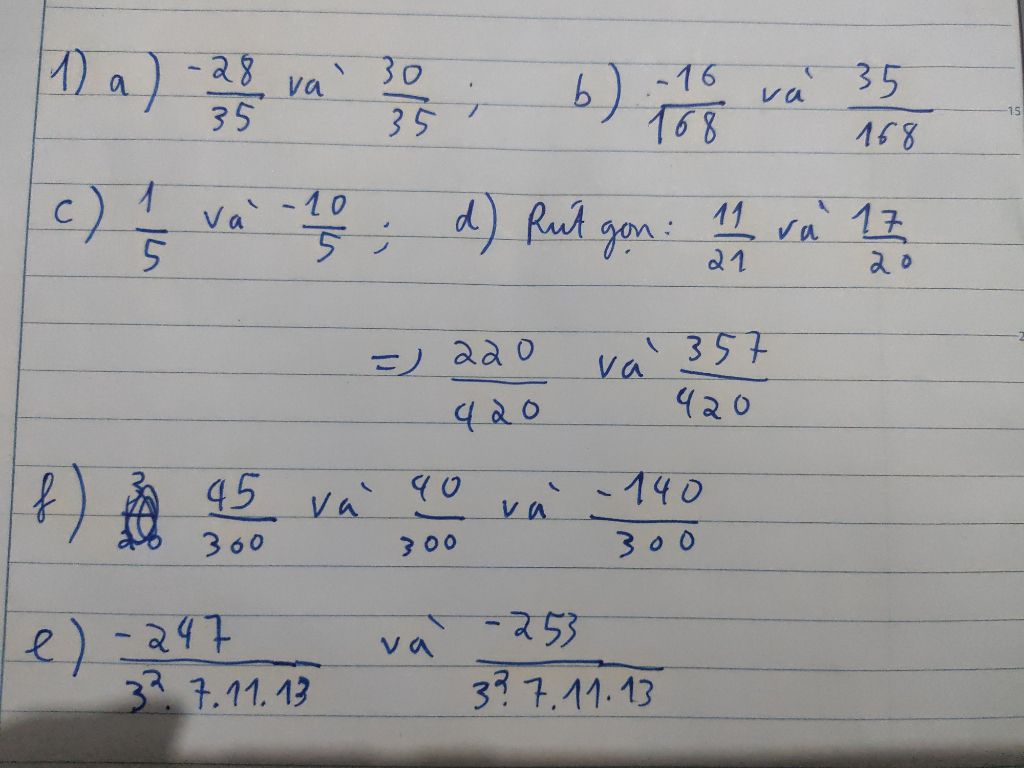 1) a) -28/35 và 30/35 ; b) -16/168 và 35/168
c) 1/5 và -10/5 ; d) Rút gọn: 11/21 và 17/20
=> 220/420 và 357/420
f) 45/300 và 40/300 và -140/300
e) -247/3². 7.11.13 và -253/3². 7.11.13